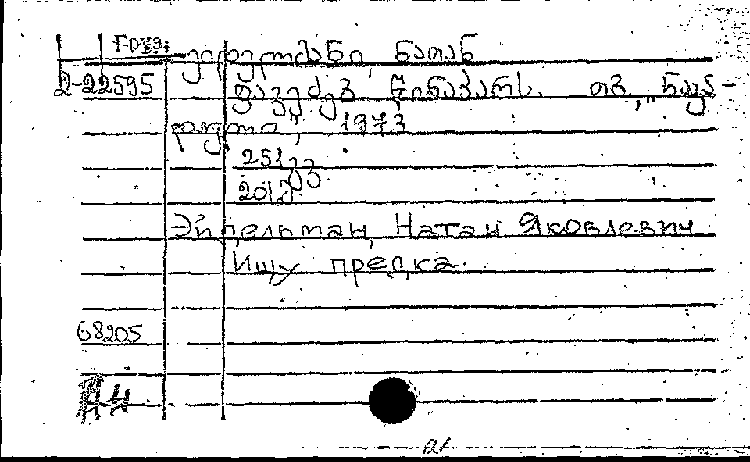 ეიდელმანი, ნათან
2-22595 დავეძებ წინაპარს. თბ., „ნაკა-
დული“, 1973
251 გვ
Эйдельман, Натан Яковлевич
Ищу предка.
68205